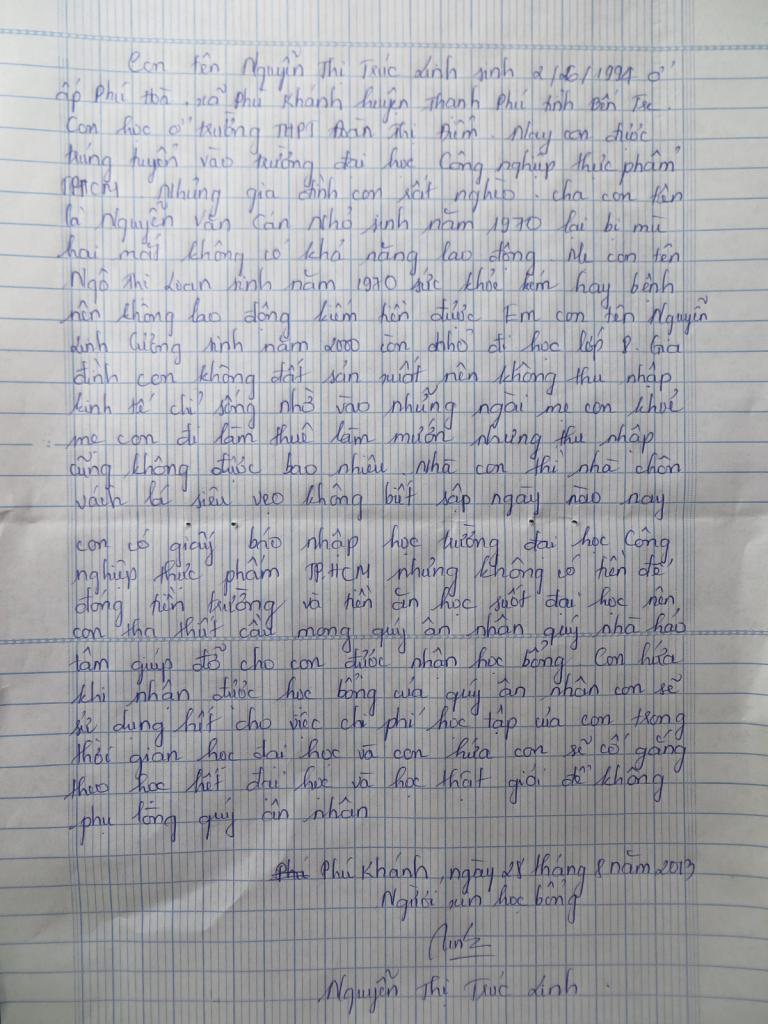 Con tên Nguyễn Thị Trúc Linh sinh 2/6/1994 ở
ấp Phú Hoà. xã Phú Khánh huyện Thạnh Phú tỉnh Bến Tre.
Con học ở trường THPT Đoàn Thị Điểm. Nay con được
trúng tuyển vào trường đại học Công nghiệp thực phẩm
TPHCM Nhưng gia đình con rất nghèo. cha con tên
là Nguyễn Văn Cán Nhỏ sinh năm 1970 lại bị mù
hai mắt không có khả năng lao động. Mẹ con tên
Ngô Thị Loan sinh năm 1970 sức khỏe kém hay bệnh
nên không lao động kiếm tiền được Em con tên Nguyễn
Linh Cường sinh năm 2000 còn nhỏ đi học lớp 8. Gia
đình con không đất sản xuất nên không thu nhập
kinh tế chỉ sống nhờ vào những ngài mẹ con khoẻ
mẹ con đi làm thuê làm mướn nhưng thu nhập
cũng không được bao nhiêu. Nhà con thì nhà chôn
vách lá siêu vẹo không biết sập ngày nào nay
con có giấy báo nhập học trường đại học Công
nghiệp thực phẩm TP.HCM nhưng không có tiền để
đóng tiền trường và tiền ăn học suốt đại học nên
con tha thiết cầu mong quý ân nhân quý nhà hảo
tâm giúp đỡ cho con được nhận học bổng. Con hứa
khi nhận được học bổng của quý ân nhân con sẽ
sử dụng hết cho việc chi phí học tập của con trong
thời gian học đại học và con hứa con sẽ cố gắng
theo học hết đại học và học thật giỏi để không
phụ lòng quý ân nhân
Phú Khánh, ngày 28 tháng 8 năm 2013
Người xin học bổng
Linh
Nguyễn Thị Trúc Linh.